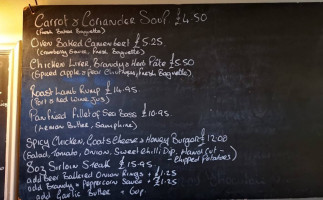 Carrot & Coriander Soup £4.50
(Fresh Baked Baguette)
Oven Baked Camembert £5.25
(Cranberry Sauce, Fresh Baguette)
Chicken Liver, Brandy & Herb Pate £5.50
(Spiced apple & Pear Chutney, Fresh Baguette)
Roast Lamb Rump £14.95
(Port & Red Wine Jus)
Pan Fried Fillet of Sea Bass £10.95
(Lemon Butter, Samphire)
Spicy Chicken, Goats Cheese & Honey Burger £12.00
(Salad, Tomato, Onion, Sweet Chilli Dip, Hand Cut -
- Chipped Potatoes)
8oz Sirloin Steak £15.95,
add Beer Battered Onion Rings + £1.25
add Brandy & Peppercorn Sauce + £1.25
add Garlic Butter + 60p